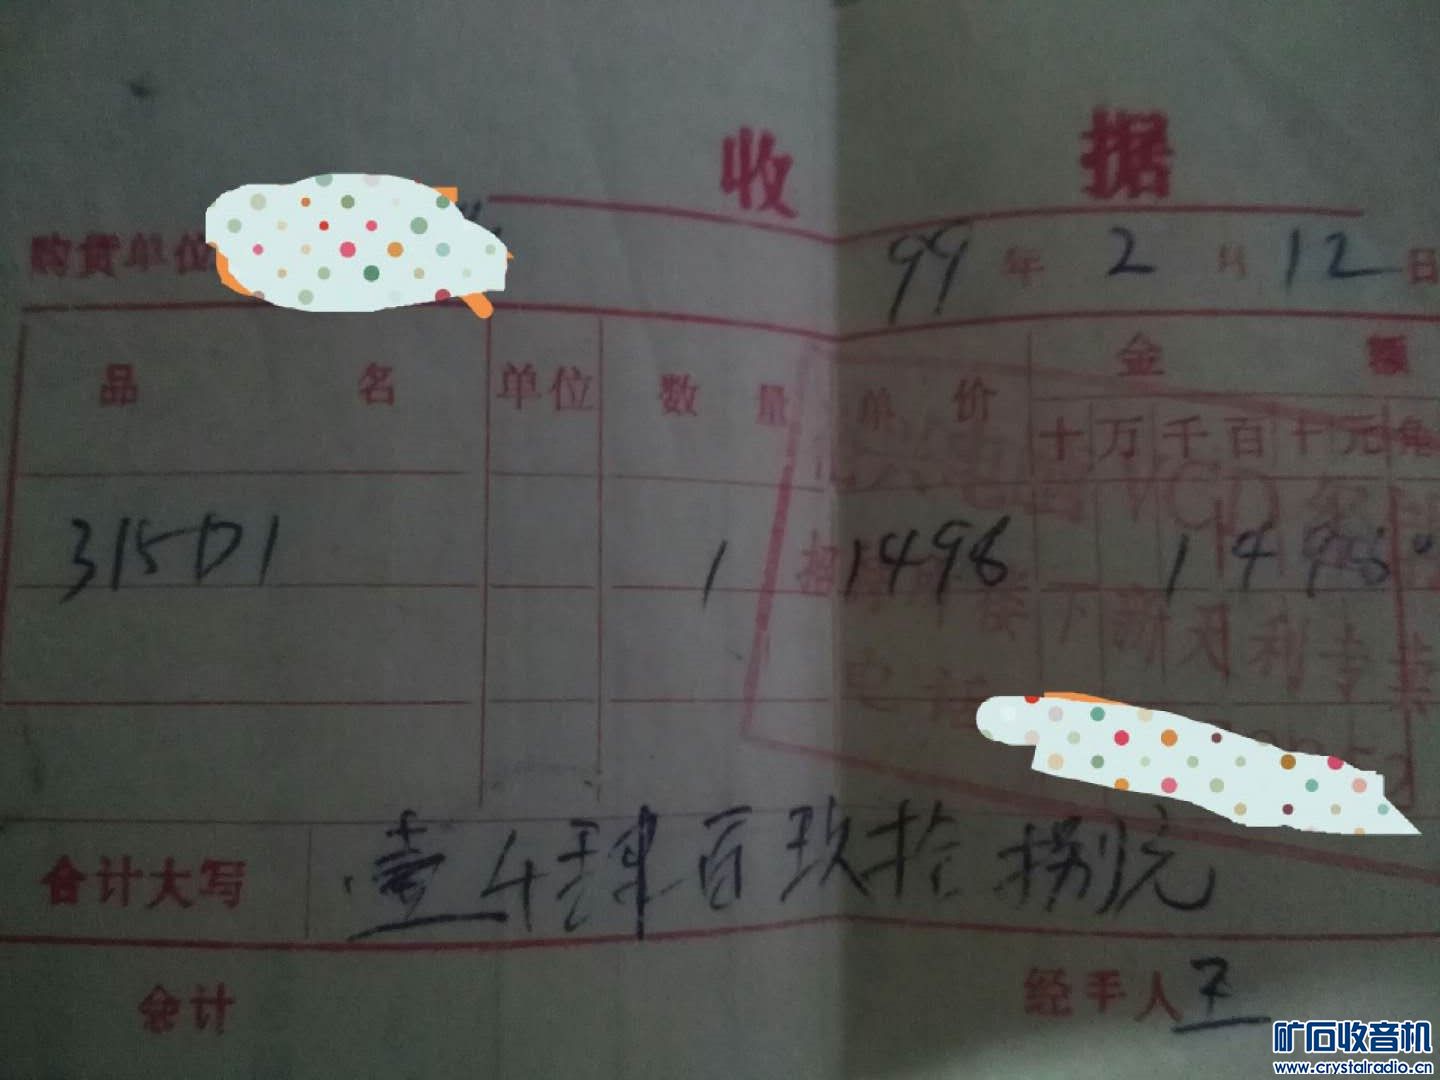 收据
购货单位
99年2月12日
品名 单位 数量 单价 金额
十万千百十元角
315D1 1 1498 1498
VCD
接下新天利专卖
电话
合计大写 壹仟肆百玖拾捌元
会计 经手人 王
矿石收音机
www.crystalradio.cn